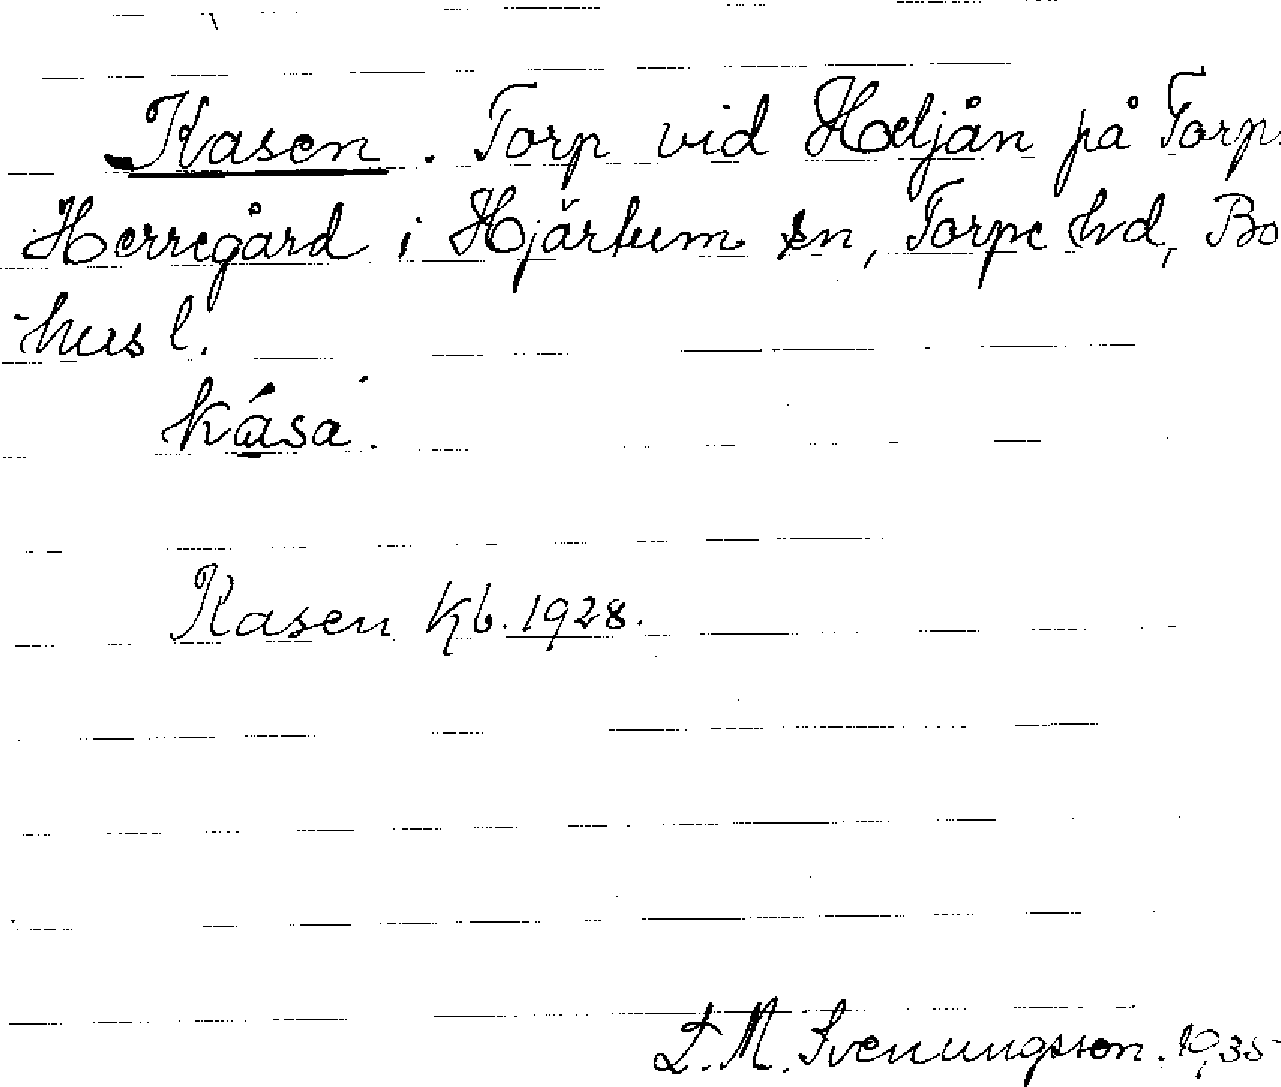 Kasen. Torp vid Hdljån på Torps
Herregård i Hjärtum sn, Torpe hd, Bo
-hus l.
kása.
Kasen Kb. 1928.
L. M. Svenungsson. 1935